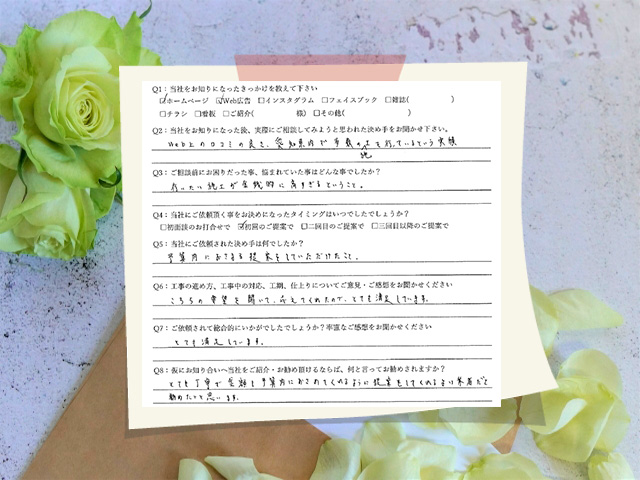 Q1：当社をお知りになったきっかけを教えて下さい
☑ホームページ ☑Web広告 □インスタグラム □フェイスブック □雑誌（ ）
□チラシ □看板 □ご紹介（ 様）□その他（ ）
Q2：当社をお知りになった後、実際にご相談してみようと思われた決め手をお聞かせ下さい。
Web上の口コミの良さ、愛知県内で多数の施工を行っているという実績
Q3：ご相談前にお困りだった事、悩まれていた事はどんな事でしたか？
行いたい施工が金銭的に高すぎるということ。
Q4：当社にご依頼頂く事をお決めになったタイミングはいつでしたでしょうか？
□初面談のお打合せで ☑初回のご提案で □二回目のご提案で □三回目以降のご提案で
Q5：当社にご依頼された決め手は何でしたか？
予算内におさまる提案をしていただけたこと。
Q6：工事の進め方、工事中の対応、工期、仕上りについてご意見・ご感想をお聞かせください
こちらの要望を聞いて、応えてくれたので、とても満足しています。
Q7：ご依頼されて総合的にいかがでしたでしょうか？率直なご感想をお聞かせください
とても満足しています。
Q8：仮にお知り合いへ当社をご紹介・お勧め頂けるならば、何と言ってお勧めされますか？
とても丁寧で金額も予算内におさめてくれるように提案をしてくれるよい業者だと
勧めたいと思います。